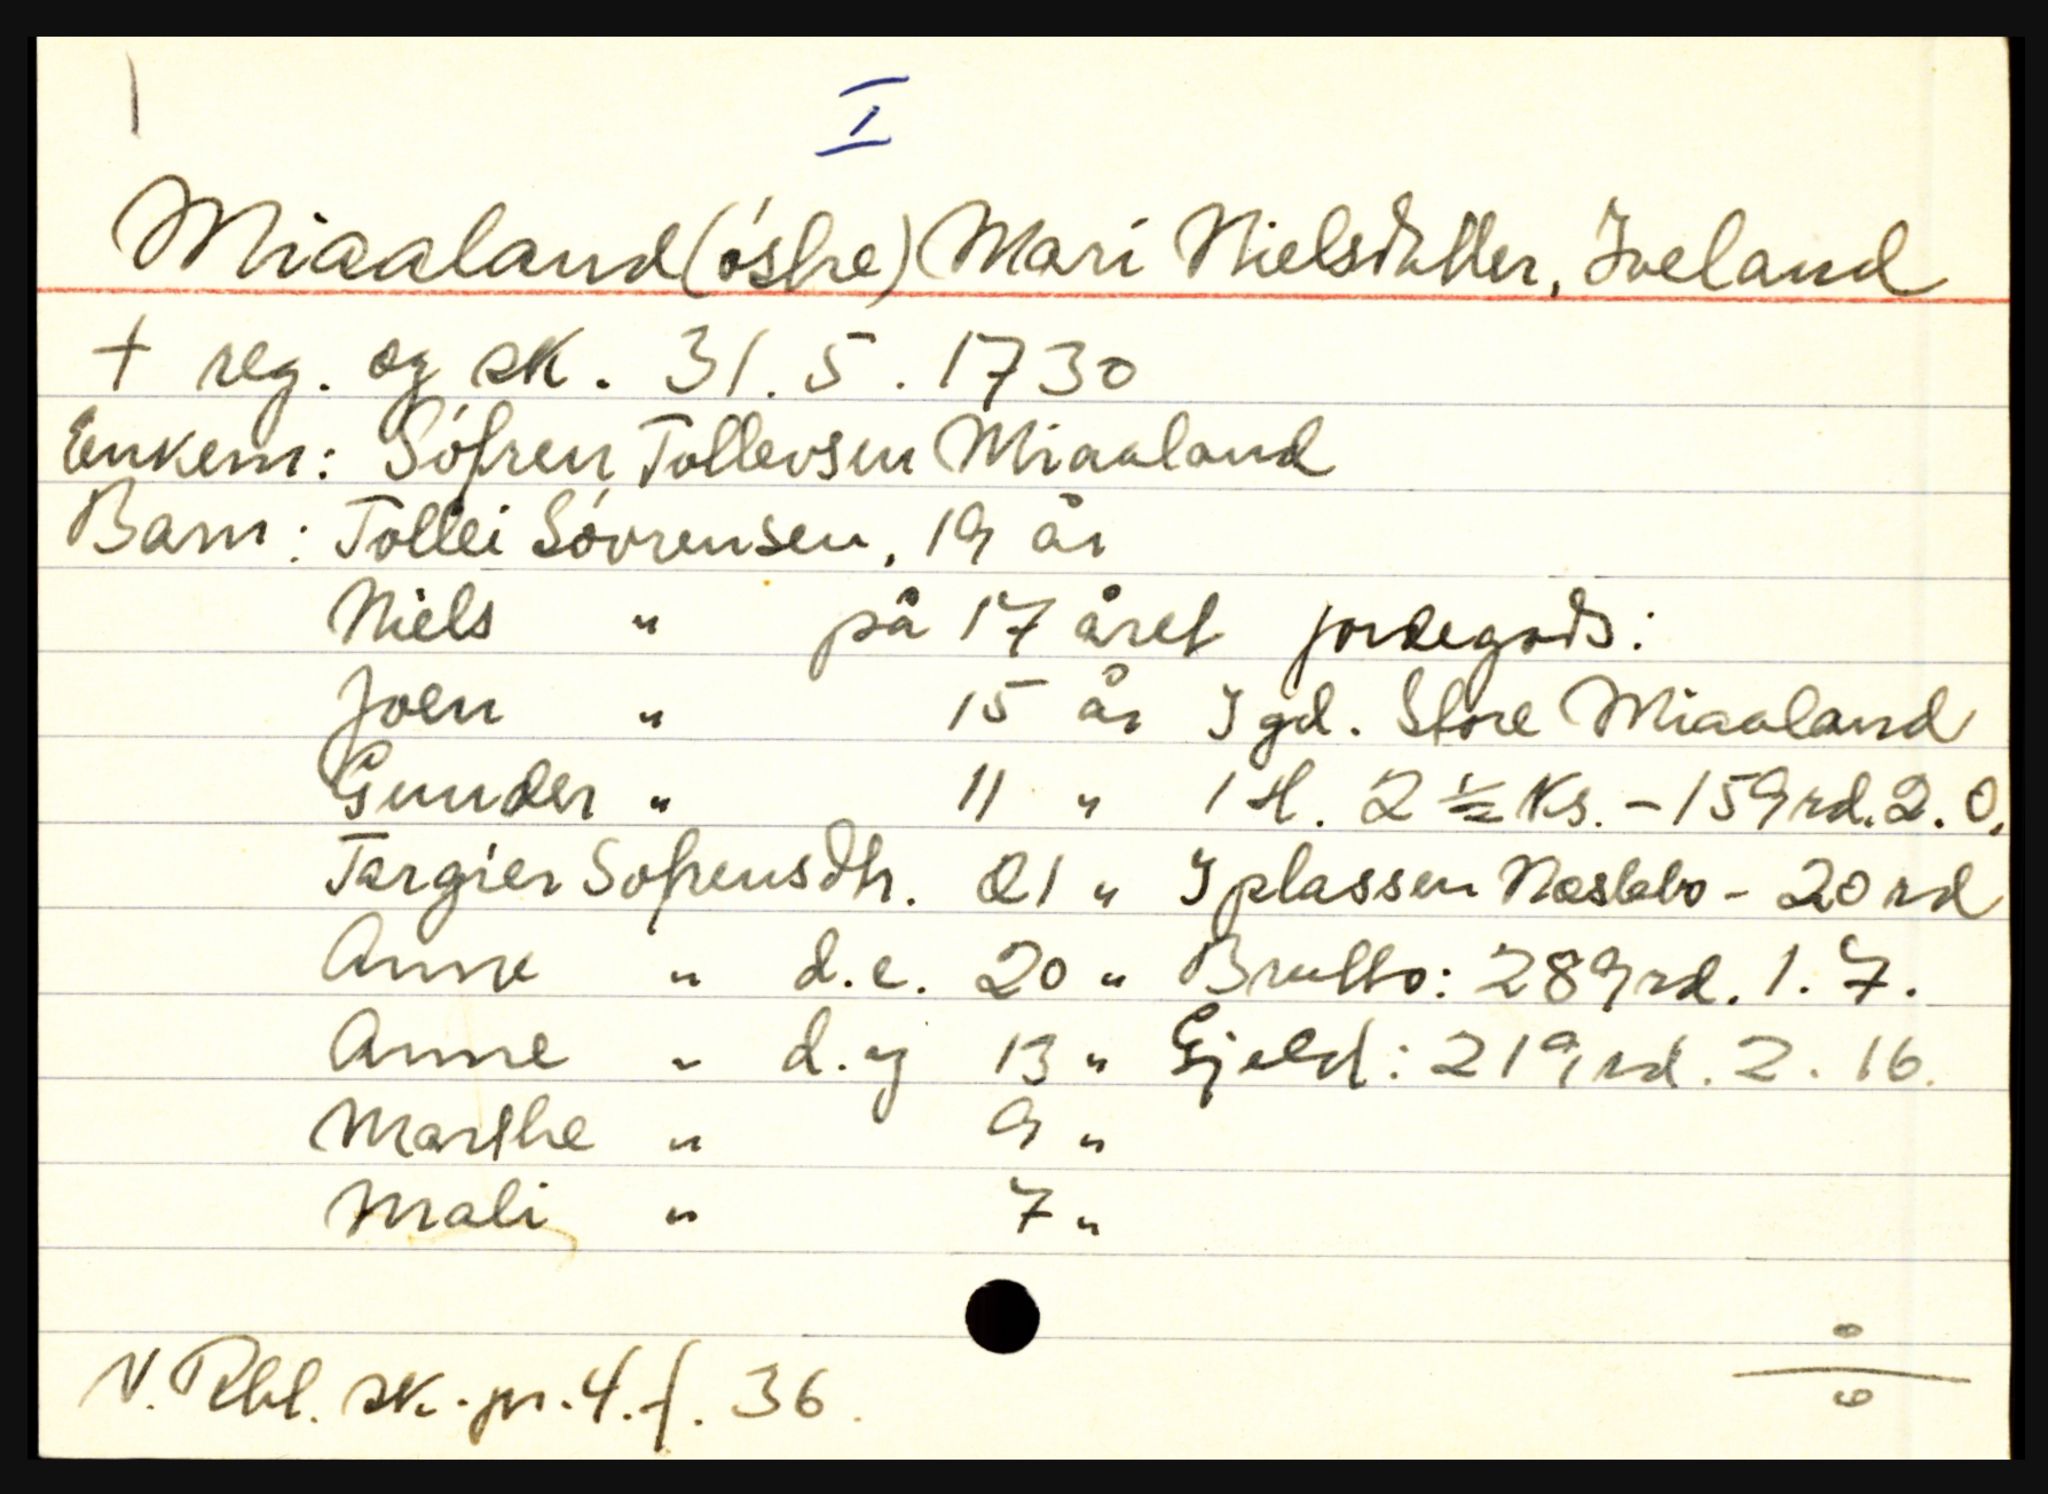 I
Miaaland (óstre) Mari Nielsdatter, Iveland
† reg. og sk. 31.5.1730
Enkem: Sófren Tollevsen Miaaland
Barn: Tollei Sóvrensen, 19 år
Niels " på 17 året jordegods:
Joen " 15 år I gd. Store Miaaland
Gunder " 11 " 1 H. 2 ½ Ks. - 159 rd. 2. 0.
Targier Sofrensdtr. 21 " I plassen - 20 rd
Anne " d.e. 20 " Brutto: 289 rd. 1. 7.
Anne " d.y 13 " Gjeld: 219 rd. 2. 16.
Marthe " 9 "
Mali " 7 "
N. Rbl. sk. pr. 4. f. 36.